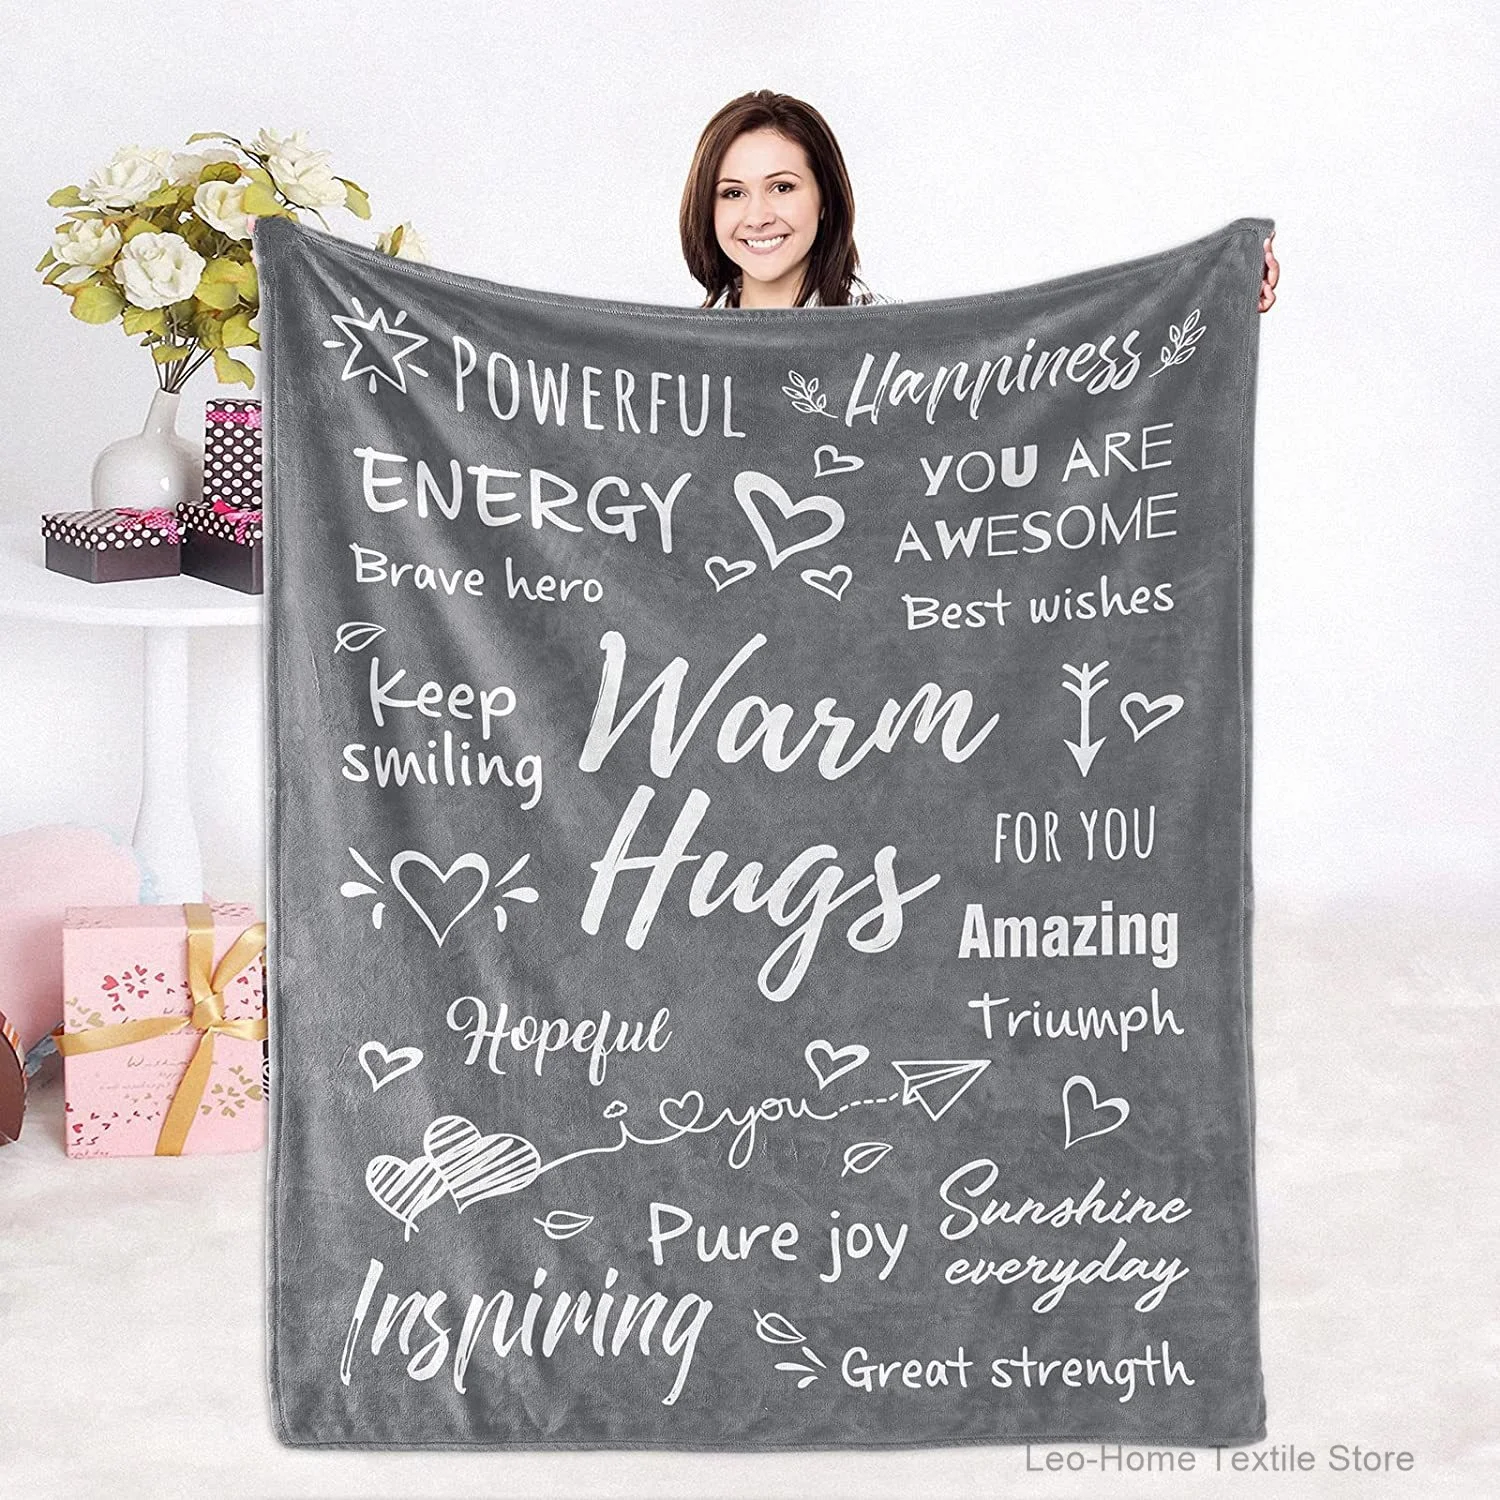 POWERFUL
Happiness
ENERGY
YOU ARE
AWESOME
Brave hero
Best wishes
Keep
smiling
Warm
Hugs
FOR YOU
Amazing
Triumph
Hopeful
i you
Pure joy
Sunshine
everyday
Inspiring
Great strength
Leo-Home Textile Store